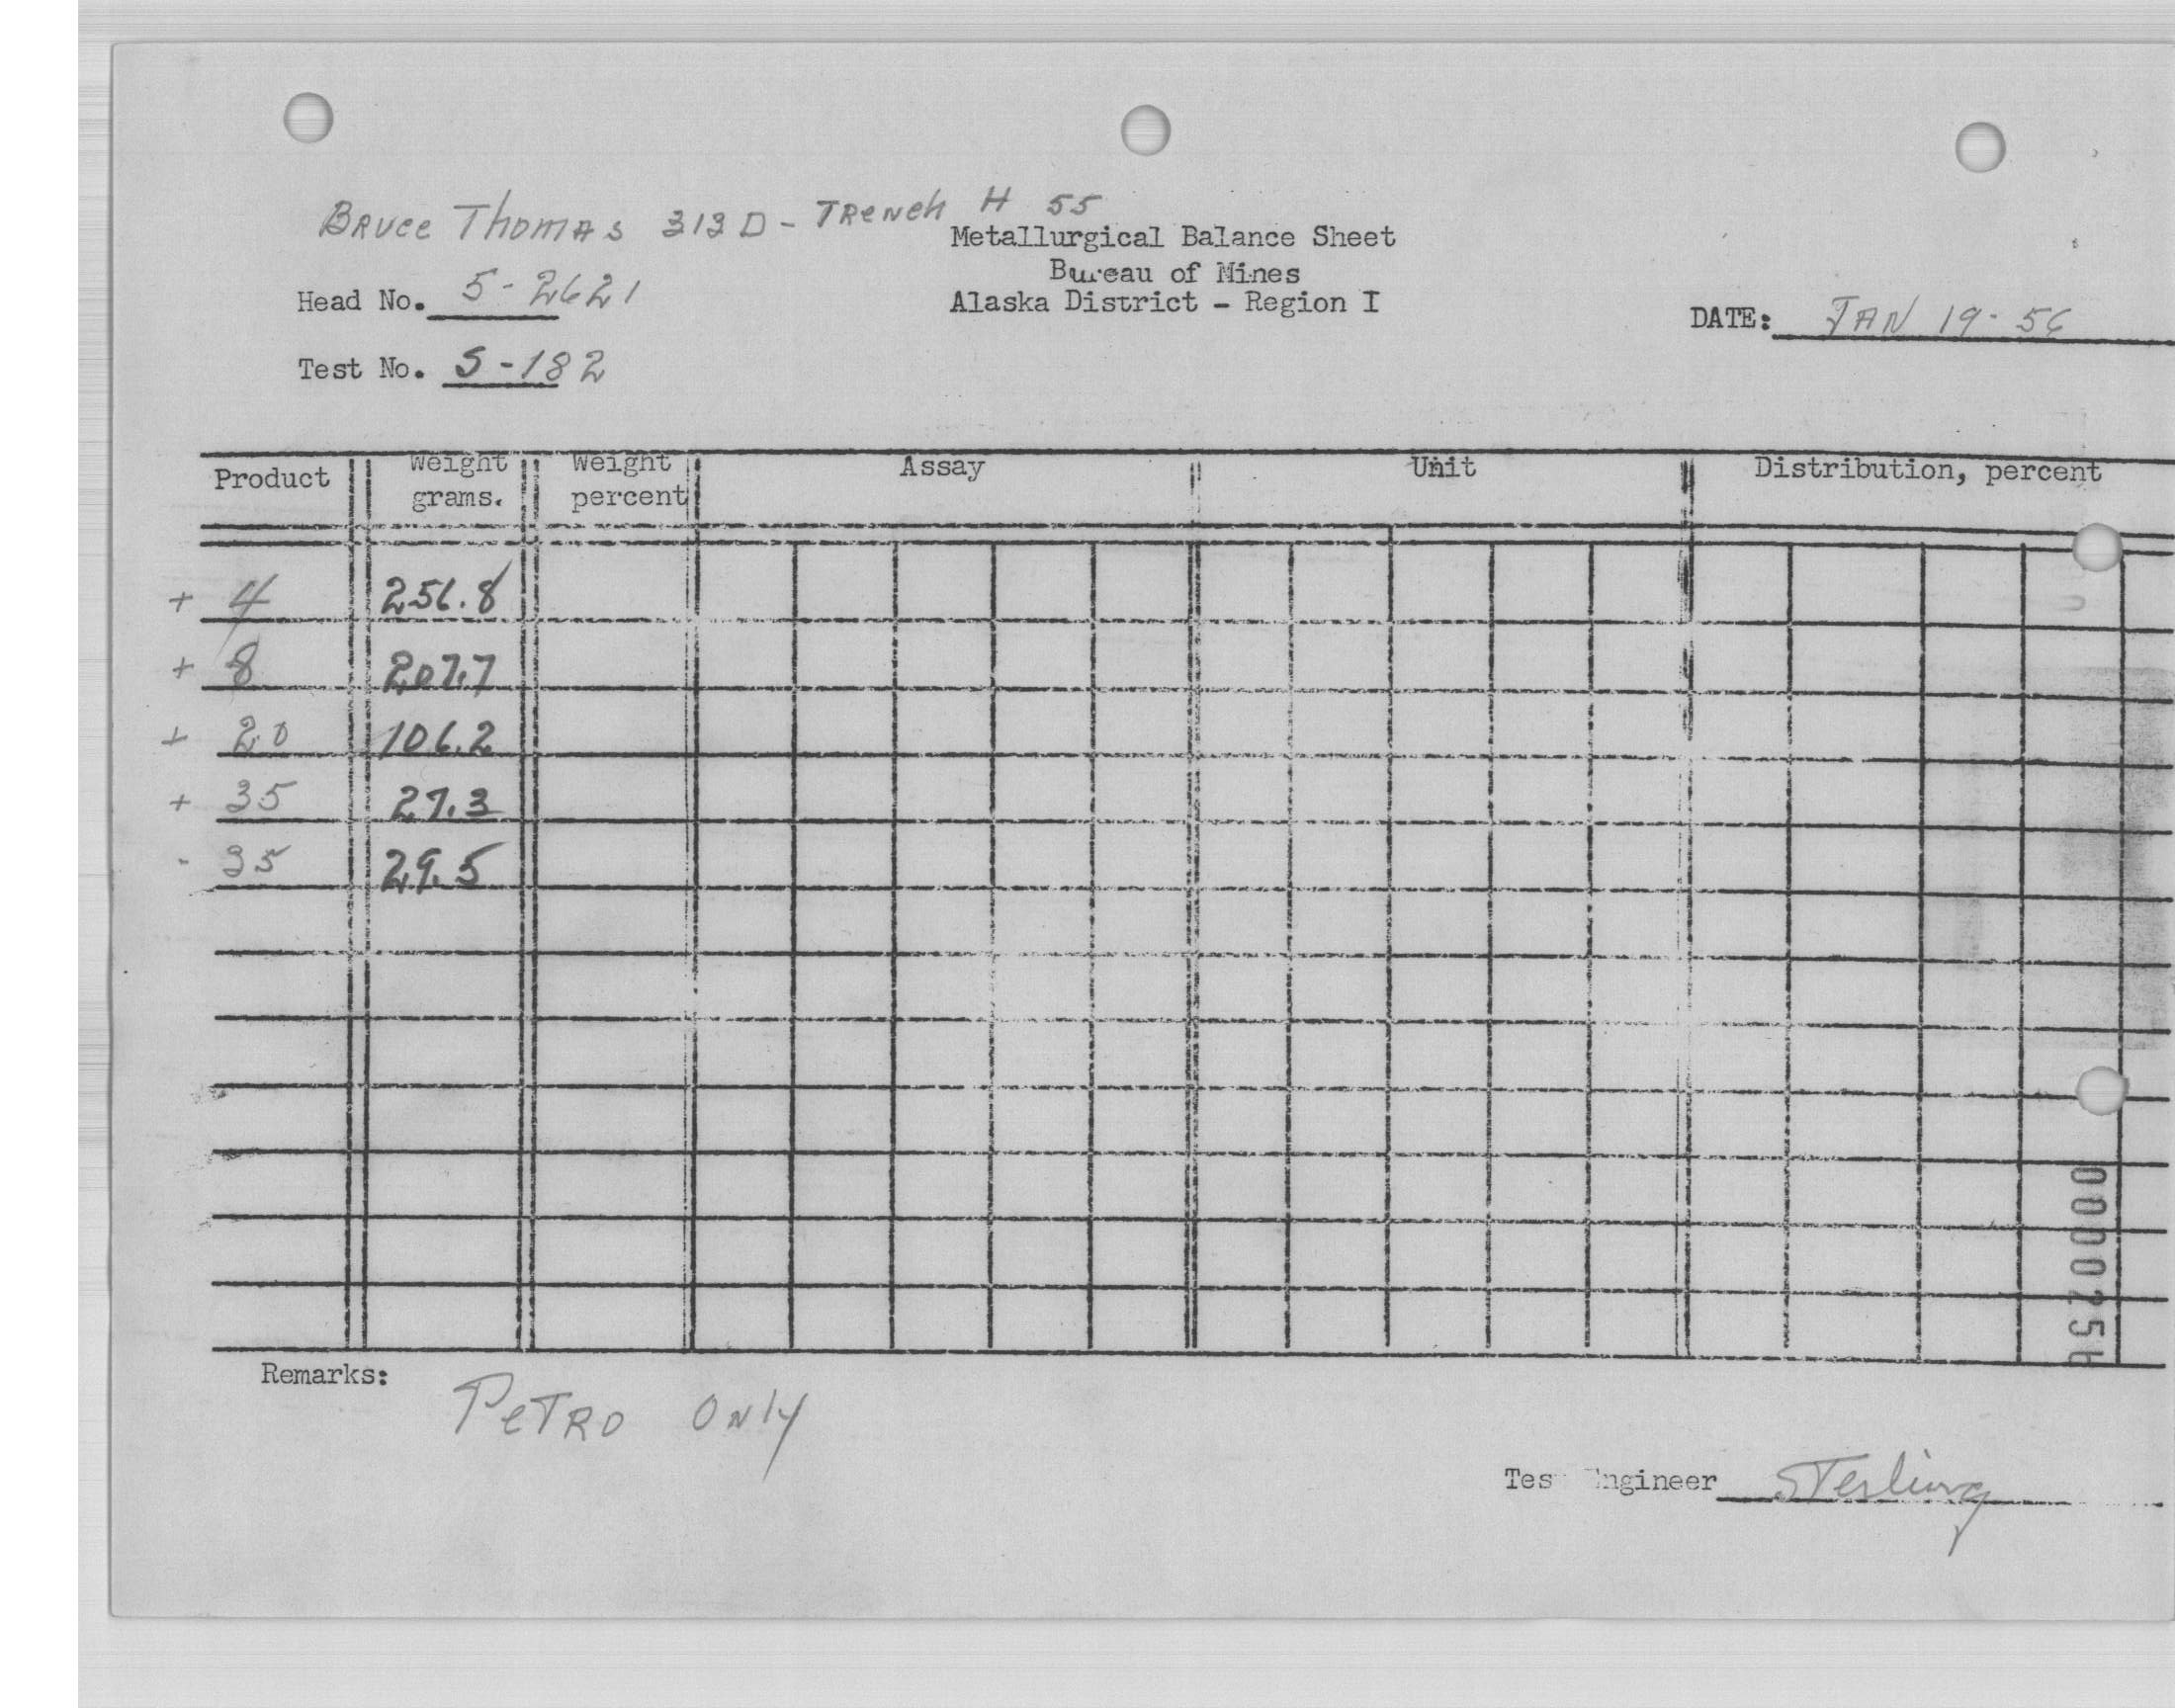 Bruce Thomas 313 D - Trench H 55
Metallurgical Balance Sheet
Bureau of Mines
Alaska District - Region I
Head No. 5-2621
DATE: JAN 19-56
Test No. S-182
Product Weight grams. Weight percent Assay Unit Distribution, percent
+ 4 256.8
+ 8 207.7
+ 20 106.2
+ 35 27.3
- 35 29.5
Remarks: Petro Only
Test Engineer Sterling